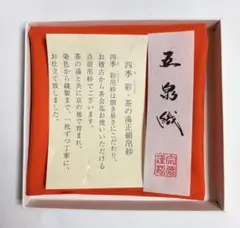 五泉織
四季・彩・茶の湯正絹帛紗
四季・彩帛紗は捌き易さにこだわり、
お稽古から茶会迄お使いいただける
点前帛紗でございます。
茶の湯と共に京の地で育まれ、
染色から縫製まで、一枚ずつ丁寧に、
お仕立て致しました。